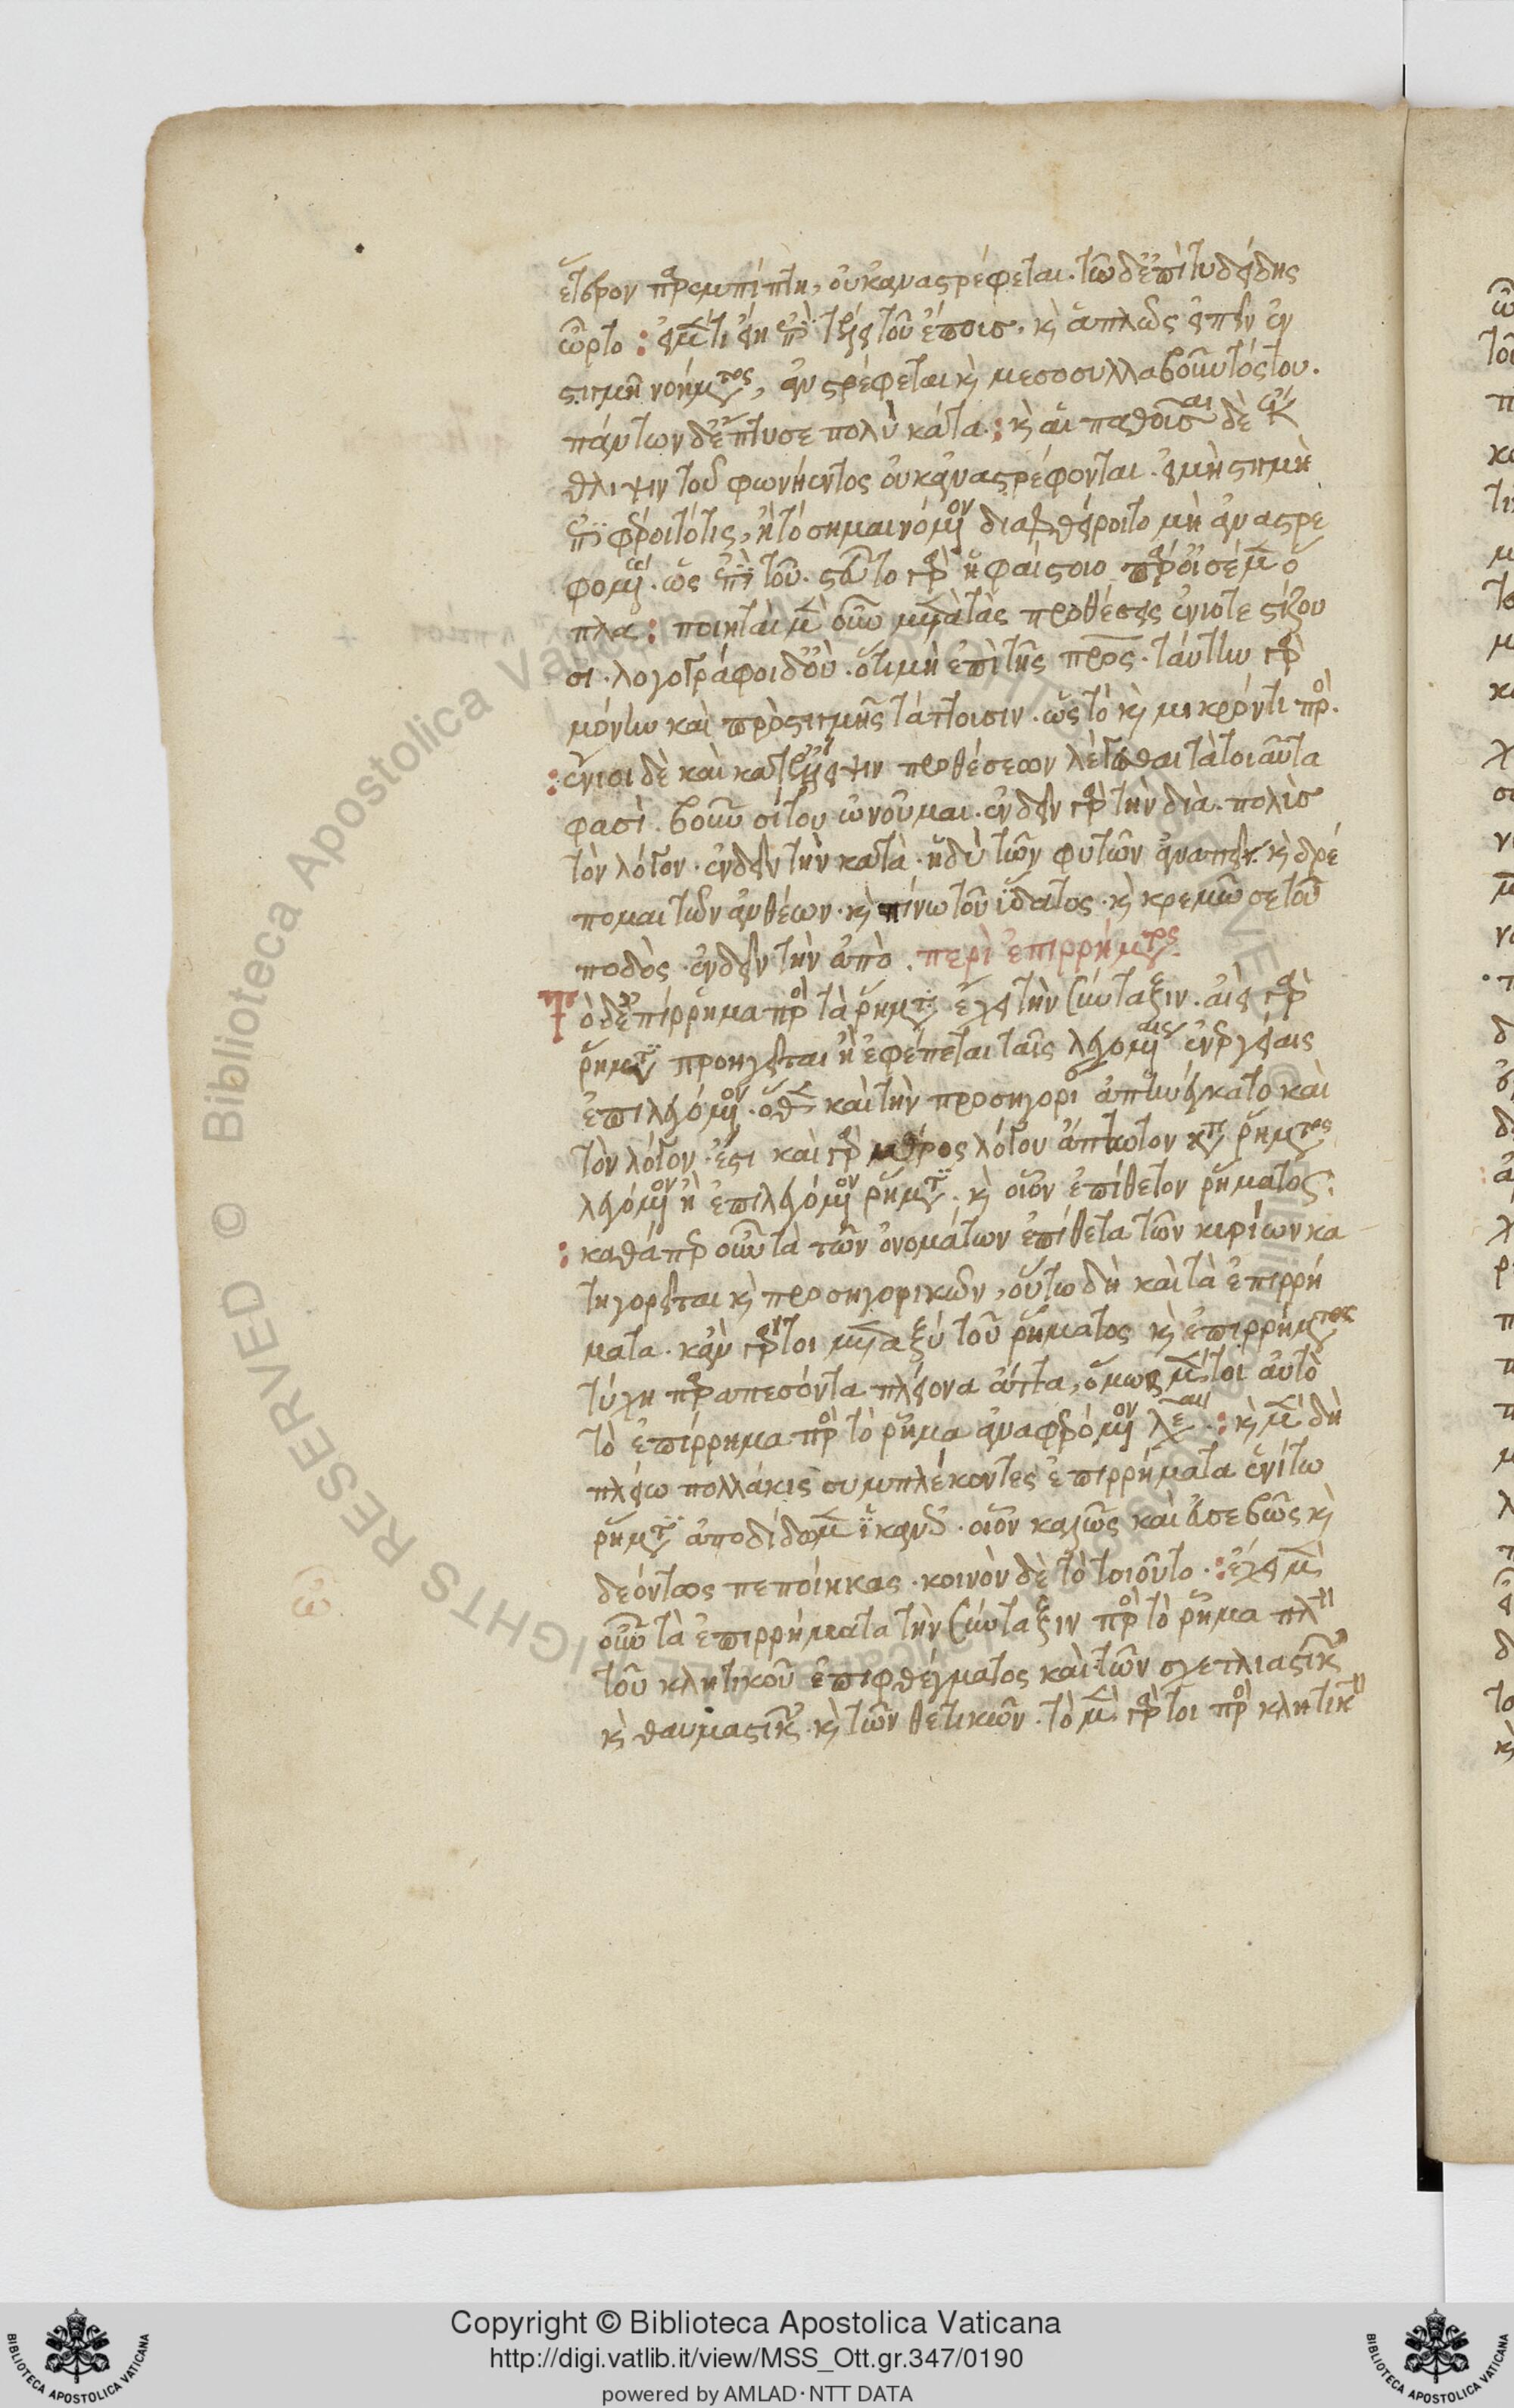 ἕτερον παρεμπίπτη, οὐκ ἀναστρέφεται. τῶ δ' ἐπὶ τυδείδης
ὦρτο : εἰ μέντι εἴη ἐπὶ τέλει τοῦ ἔπους. κ ἁπλῶς εἰπεῖν ἐν
στιγμῆ νοήματος, ἀναστρέφεται κ μεσοσυλλαβοῦντός του.
πάντων δ' ἔπτυσε πολὺ κάτα : κ αἱ παθοῦσαι δὲ
θλιψιν τοῦ φωνήεντος οὐκ ἀναστρέφονται. εἰ μὴ στιγμὴ
ἐπιφέροιτό τις, ἢ τὸ σημαινόμενον διαφθείροιτο μὴ ἀναστρε
φομένης. ὡς ἐπὶ τοῦ. στᾶ
πλα : ποιηταὶ μὲν οὖν μετὰ τὰς προθέσεις ἐνίοτε στίζου
σι. λογογράφοι δ' οὔ. ὅτι μὴ ἐπὶ τῆς πρός. ταύτην γὰρ
μόνην καὶ πρὸ στιγμῆς τάττουσιν. ὡς τὸ κ μικρόν τι πρός.
: ἔνιοι δὲ καὶ κατ' ἔλλειψιν προθέσεων λέγεσθαι τὰ τοιαῦτα
φασί. βοῦν σίτου ὠνοῦμαι. ἐνδεῖν γὰρ τὴν διὰ. πολὺς
τὸν λόγον. ἐνδεῖν τὴν κατὰ. ἡδὺ τῶν φυτῶν ἀναπνεῖν. κ δρέ
πομαι τῶν ἀνθέων. κ πίνω τοῦ ὕδατος. κ κρεμῶ σε τοῦ
ποδὸς. ἐνδεῖν τὴν ἀπὸ. περὶ ἐπιρρήματος
Τὸ δ' ἐπίρρημα πρὸς τὰ ῥήματα ἔχει τὴν σύνταξιν. ἀεὶ γὰρ
ῥήματα προηγεῖται ἢ ἐφέπεται ταῖς λεγομέναις ἐνεργείαις
ἐπιλεγόμενον. ὅθεν καὶ τὴν προσηγορίαν ἀπηνέγκατο καὶ
τὸν λόγον. ἔστι καὶ γὰρ μέρος λόγου ἄπτωτον κατὰ ῥήματος
λεγόμενον ἢ ἐπιλεγόμενον ῥήματι. κ οἷον ἐπίθετον ῥήματος.
: καθάπερ οὖν τὰ τῶν ὀνομάτων ἐπίθετα τῶν κυρίων κα
τηγορεῖται κ προσηγορικῶν, οὕτω δὴ καὶ τὰ ἐπιρρή
ματα. κἂν γάρ τοι μεταξύ τοῦ ῥήματος κ ἐπιρρήματος
τύχη παραπεσόντα πλείονα ἄττα, ὅμως μέντοι αὐτὸ
τὸ ἐπίρρημα πρὸς τὸ ῥῆμα ἀναφερόμενον λέγεται : κ μὲν δὴ
πλείω πολλάκις συμπλέκοντες ἐπιρρήματα ἑνί τω
ῥήματι ἀποδίδομεν ἱκανῶς. οἷον καλῶς καὶ εὐσεβῶς κ
δεόντως πεποίηκας. κοινὸν δὲ τὸ τοιοῦτο : ἔχει μὲν
οὖν τὰ ἐπιρρήματα τὴν σύνταξιν πρὸς τὸ ῥῆμα πλὴν
τοῦ κλητικοῦ ἐπιφθέγματος καὶ τῶν σχετλιαστικῶν
κ θαυμαστικῶν. κ τῶν θετικῶν. τὸ μὲν γάρ τοι πρὸς κλητικὴν
Copyright © Biblioteca Apostolica Vaticana
http://digi.vatlib.it/view/MSS_Ott.gr.347/0190
powered by AMLAD·NTT DATA